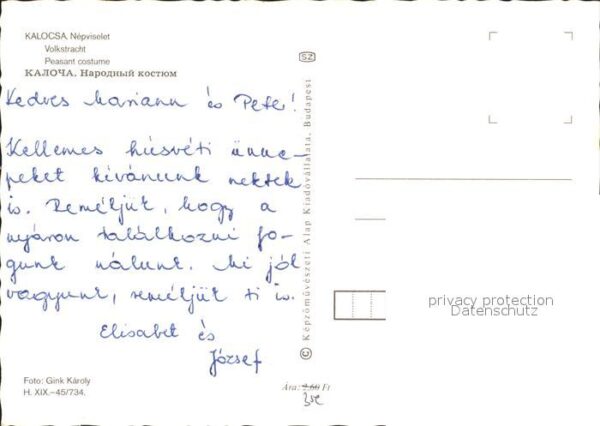 KALOCSA. Népviselet
Volkstracht
Peasant costume
КАЛОЧА. Народный костюм
SZ
Kedves Mariann és Peter!
Kellemes húsvéti ünne-
peket kívánunk nektek
is. Reméljük, hogy a
nyáron találkozni fo-
gunk nálunk. Mi jól
vagyunk, reméljük ti is.
Elisabet és
József
© Képzőművészeti Alap Kiadóvállalata, Budapest
privacy protection
Datenschutz
Foto: Gink Károly
H. XIX.–45/734.
Ára: 2,60 Ft